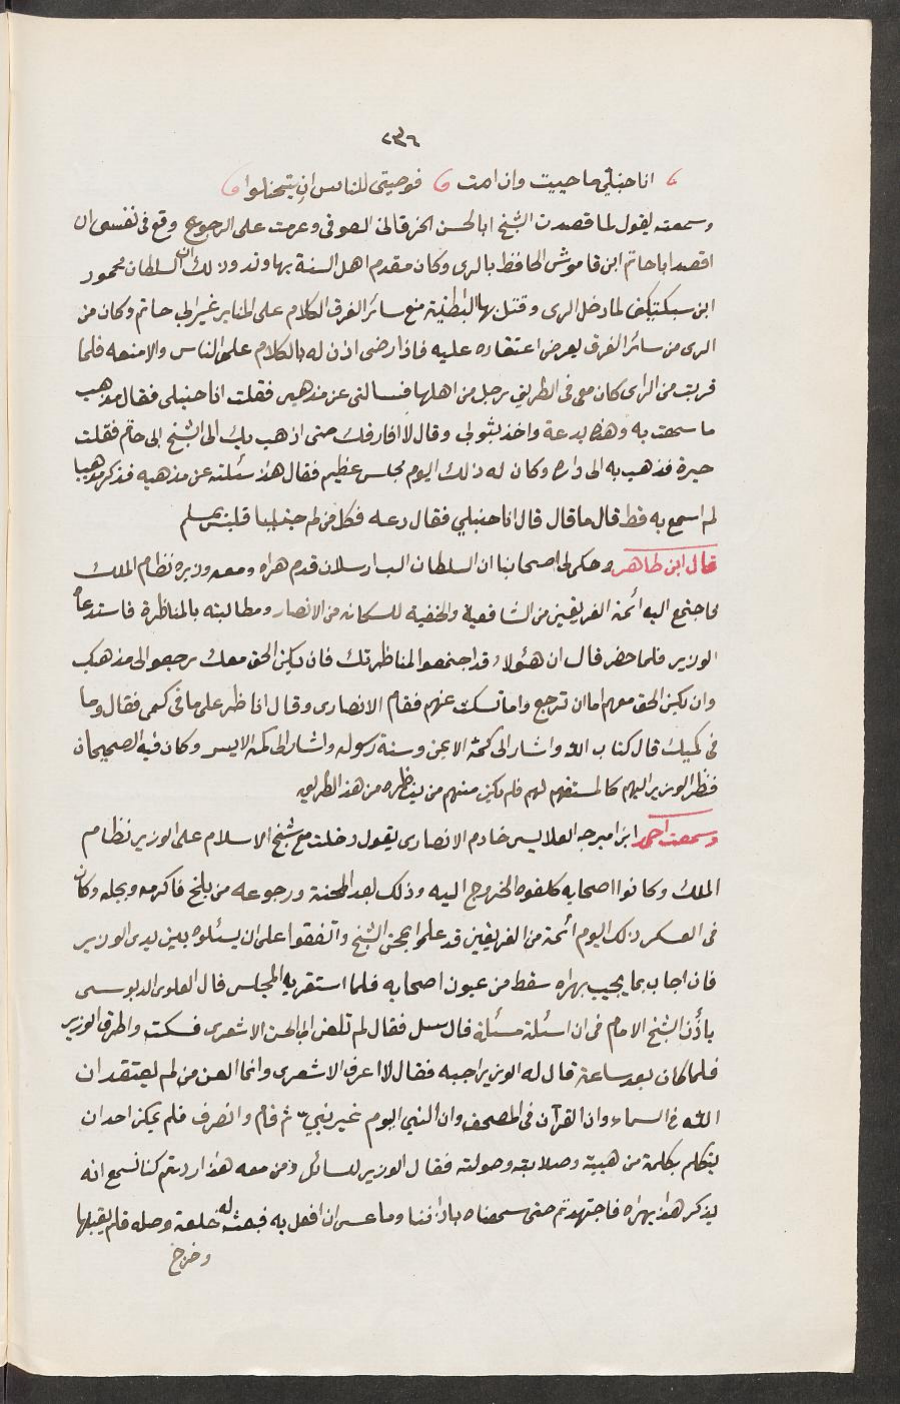 ٢٣٦
انا حنبلي ما حييت وان امت فوصيتي للناس ان يتحنبلوا
وسمعته يقول لما قصدت الشيخ ابا الحسن الخرقاني الصوفي وعزمت على الرجوع وقع في نفسي ان
اقصد ابا حاتم ابن خاموش الحافظ بالرى وكان مقدم اهل السنة بها وذلك ان السلطان محمود
ابن سبكتكين لما دخل الرى وقتل بها الباطنية منع سائر الفرق الكلام على المنابر غير ابي حاتم وكان من
الرى من سائر الفرق يعرض اعتقاده عليه فاذا رضى اذن له بالكلام على الناس والا منعه فلما
قربت من الرى كان معي في الطريق رجل من اهلها فسالني عن مذهبي فقلت انا حنبلي فقال مذهب
ما سمعت به وهذه بدعة واخذ بثوبي وقال لا افارقك حتى اذهب بك الى الشيخ ابي حاتم فقلت
خيرة فذهب به الى داره وكان له ذلك اليوم مجلس عظيم فقال هذا سئلته عن مذهبه فذكر مذهبا
لم اسمع به قط قال ما قال قال انا حنبلي فقال دعه فكل من لم حنبليا فليس بمسلم
قال ابن طاهر وحكى لي اصحابنا ان السلطان الب ارسلان قدم هراه ومعه وزيره نظام الملك
فاجتمع اليه ائمة الفريقين من الشافعية والحنفية للشكاية من الانصارى ومطالبته بالمناظرة فاستدعاه
الوزير فلما حضر قال ان هؤلاء قد اجتمعوا لمناظرتك فان يكن الحق معك رجعوا الى مذهبك
وان يكن الحق معهم اما ان ترجع واما تسكت عنهم فقام الانصارى وقال انا ظر على ما في كمى فقال وما
في كميك قال كتاب الله واشار الى كمه الايمن وسنة رسوله واشار الى كمه الايسر وكان فيه الصحيحان
فنظر الوزير اليهم كالمستفهم لهم فلم يكن منهم من يناظره من هذا الطريق
وسمعت احمد ابن اميرجه القلانسي خادم الانصارى يقول دخلت مع شيخ الاسلام على الوزير نظام
الملك وكانوا اصحابه كلفوه الخروج اليه وذلك بعد المحنة ورجوعه من بلخ فاكرمه وبجله وكان
في العسكر ذلك اليوم ائمة من الفريقين قد علموا بمجئ الشيخ واتفقوا على ان يسئلوه بين يدى الوزير
فان اجاب بما يجيب بهراه سقط من عيون اصحابه فلما استقر به المجلس قال العلوى الدبوسى
يأذن الشيخ الامام في ان اسئله مسئلة قال سل فقال لم تلعن ابا الحسن الاشعرى فسكت واطرق الوزير
فلما كان بعد ساعة قال له الوزير اجبه فقال لا اعرف الاشعرى وانما العن من لم يعتقد ان
الله في السماء وان القرآن في المصحف وان النبي اليوم غير نبي ثم قام وانصرف فلم يمكن احد ان
يتكلم بكلمة من هيبته وصلابته وصولته فقال الوزير للسائل ومن معه هذا اردتم كنا نسمع انه
يذكر هذا بهراه فاجتهدتم حتى سمعناه باذاننا وما عسى ان افعل به فبعث له خلعة وصله فلم يقبلها
وخرج